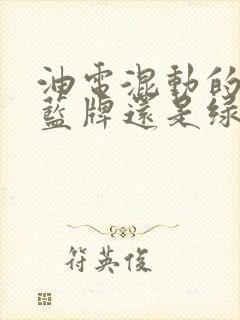 油電混動的
藍牌還是綠
符英俊